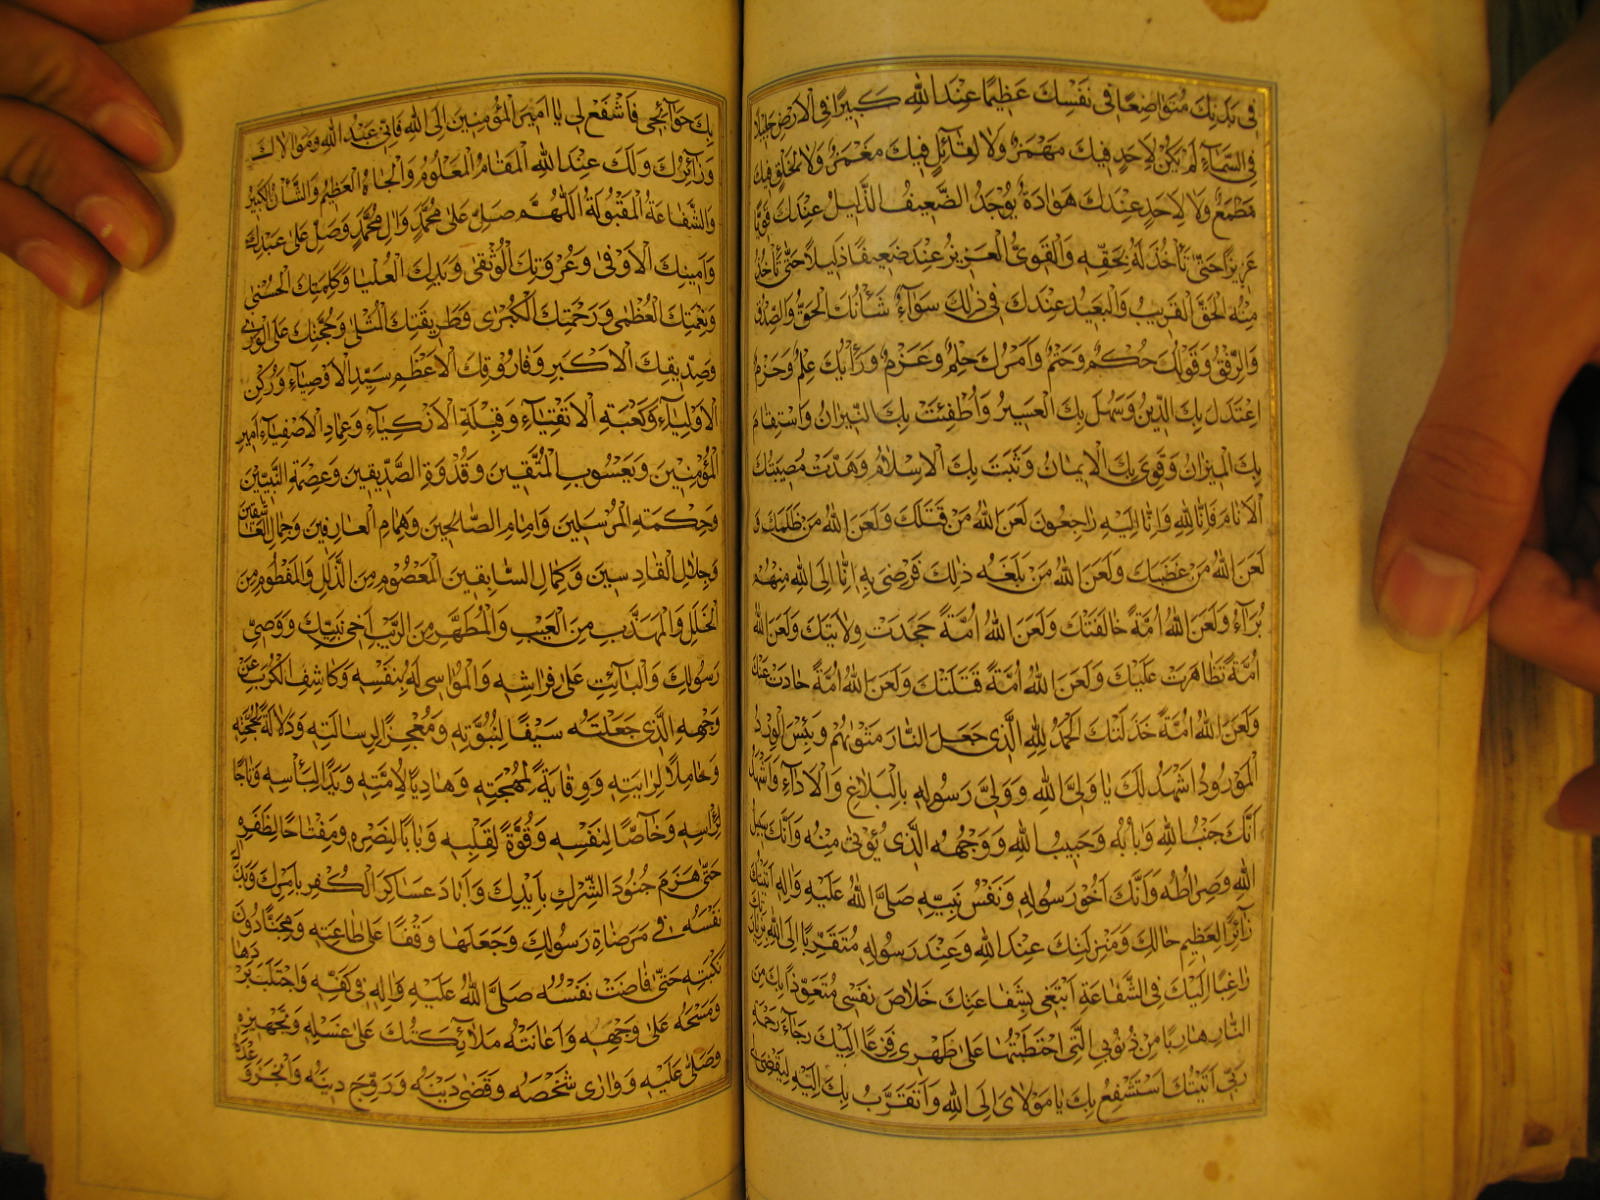 فِى بَدَنِكَ مُتَوَاضِعًا فِى نَفْسِكَ عَظِيمًا عِنْدَ اللهِ كَبِيرًا فِى الْاَرْضِ جَلِيلًا
فِى السَّمَآءِ لَمْ يَكُنْ لِاَحَدٍ فِيكَ مَهْمَزٌ وَلَا لِقَآئِلٍ فِيكَ مَغْمَزٌ وَلَا لِخَلْقٍ فِيكَ
مَطْمَعٌ وَلَا لِاَحَدٍ عِنْدَكَ هَوَادَةٌ يُوْجَدُ الضَّعِيفُ الذَّلِيلُ عِنْدَكَ قَوِيًّا
عَزِيزًا حَتّٰى تَأْخُذَ لَهُ بِحَقِّهِ وَالْقَوِىُّ الْعَزِيزُ عِنْدَكَ ضَعِيفًا ذَلِيلًا حَتّٰى تَأْخُذَ
مِنْهُ الْحَقَّ الْقَرِيبُ وَالْبَعِيدُ عِنْدَكَ فِى ذٰلِكَ سَوَآءٌ شَأْنُكَ الْحَقُّ وَالصِّدْقُ
وَالرِّفْقُ وَقَوْلُكَ حُكْمٌ وَحَتْمٌ وَاَمْرُكَ حِلْمٌ وَعَزْمٌ وَرَأْيُكَ عِلْمٌ وَحَزْمٌ
اِعْتَدَلَ بِكَ الدِّينُ وَسَهُلَ بِكَ الْعَسِيرُ وَاُطْفِئَتْ بِكَ النِّيرَانُ وَاسْتَقَامَ
بِكَ الْمِيزَانُ وَقَوِىَ بِكَ الْاِيمَانُ وَثَبَتَ بِكَ الْاِسْلَامُ وَهَدَّتْ مُصِيبَتُكَ
الْاَنَامَ فَاِنَّا لِلّٰهِ وَاِنَّا اِلَيْهِ رَاجِعُونَ لَعَنَ اللهُ مَنْ قَتَلَكَ وَلَعَنَ اللهُ مَنْ ظَلَمَكَ وَ
لَعَنَ اللهُ مَنْ غَصَبَكَ وَلَعَنَ اللهُ مَنْ بَلَغَهُ ذٰلِكَ فَرَضِىَ بِهِ اِنَّا اِلَى اللهِ مِنْهُمْ
بُرَآءُ وَلَعَنَ اللهُ اُمَّةً خَالَفَتْكَ وَلَعَنَ اللهُ اُمَّةً جَحَدَتْ وِلَايَتَكَ وَلَعَنَ اللهُ
اُمَّةً تَظَاهَرَتْ عَلَيْكَ وَلَعَنَ اللهُ اُمَّةً قَتَلَتْكَ وَلَعَنَ اللهُ اُمَّةً حَادَتْ عَنْكَ
وَلَعَنَ اللهُ اُمَّةً خَذَلَتْكَ الْحَمْدُ لِلّٰهِ الَّذِى جَعَلَ النَّارَ مَثْوٰيهُمْ وَبِئْسَ الْوِرْدُ
الْمَوْرُودُ اَشْهَدُ لَكَ يَا وَلِىَّ اللهِ وَوَلِىَّ رَسُولِهِ بِالْبَلَاغِ وَالْاَدَآءِ وَاَشْهَدُ
اَنَّكَ جَنْبُ اللهِ وَبَابُهُ وَحَبِيبُ اللهِ وَوَجْهُهُ الَّذِى يُؤْتٰى مِنْهُ وَاَنَّكَ سَبِيلُ
اللهِ وَصِرَاطُهُ وَاَنَّكَ اَخُو رَسُولِهِ وَنَفْسُ نَبِيِّهِ صَلَّى اللهُ عَلَيْهِ وَاٰلِهِ اَتَيْتُكَ
زَآئِرًا لِعَظِيمِ حَالِكَ وَمَنْزِلَتِكَ عِنْدَ اللهِ وَعِنْدَ رَسُولِهِ مُتَقَرِّبًا اِلَى اللهِ بِزِيَارَتِكَ
رَاغِبًا اِلَيْكَ فِى الشَّفَاعَةِ اَبْتَغِى بِشَفَاعَتِكَ خَلَاصَ نَفْسِى مُتَعَوِّذًا بِكَ مِنَ
النَّارِ هَارِبًا مِنْ ذُنُوبِىَ الَّتِى احْتَطَبْتُهَا عَلٰى ظَهْرِى فَزِعًا اِلَيْكَ رَجَآءَ رَحْمَةِ
رَبِّى اَتَيْتُكَ اَسْتَشْفِعُ بِكَ يَا مَوْلَاىَ اِلَى اللهِ وَاَتَقَرَّبُ بِكَ اِلَيْهِ لِيَقْضِىَ
بِكَ حَوَآئِجِى فَاشْفَعْ لِى يَا اَمِيرَ الْمُؤْمِنِينَ اِلَى اللهِ فَاِنِّى عَبْدُ اللهِ وَمَوْلَاكَ
وَزَآئِرُكَ وَلَكَ عِنْدَ اللهِ الْمَقَامُ الْمَعْلُومُ وَالْجَاهُ الْعَظِيمُ وَالشَّأْنُ الْكَبِيرُ
وَالشَّفَاعَةُ الْمَقْبُولَةُ اَللّٰهُمَّ صَلِّ عَلٰى مُحَمَّدٍ وَاٰلِ مُحَمَّدٍ وَصَلِّ عَلٰى عَبْدِكَ
وَاَمِينِكَ الْاَوْفٰى وَعُرْوَتِكَ الْوُثْقٰى وَيَدِكَ الْعُلْيَا وَكَلِمَتِكَ الْحُسْنٰى
وَنِعْمَتِكَ الْعُظْمٰى وَرَحْمَتِكَ الْكُبْرٰى وَطَرِيقَتِكَ الْمُثْلٰى وَحُجَّتِكَ عَلَى الْوَرٰى
وَصِدِّيقِكَ الْاَكْبَرِ وَفَارُوقِكَ الْاَعْظَمِ سَيِّدِ الْاَوْصِيَآءِ وَرُكْنِ
الْاَوْلِيَآءِ وَكَعْبَةِ الْاَتْقِيَآءِ وَقِبْلَةِ الْاَزْكِيَآءِ وَعِمَادِ الْاَصْفِيَآءِ اَمِيرِ
الْمُؤْمِنِينَ وَيَعْسُوبِ الْمُتَّقِينَ وَقُدْوَةِ الصِّدِّيقِينَ وَعِصْمَةِ النَّبِيِّينَ
وَحِكْمَةِ الْمُرْسَلِينَ وَاِمَامِ الصَّالِحِينَ وَهُمَامِ الْعَارِفِينَ وَجَمَالِ الْعَاشِقِينَ
وَجَلَالِ الْقَادِسِينَ وَكَمَالِ السَّابِقِينَ الْمَعْصُومِ مِنَ الذَّلَلِ وَالْمَفْطُومِ مِنَ
الْخَلَلِ وَالْمُهَذَّبِ مِنَ الْعَيْبِ وَالْمُطَهَّرِ مِنَ الرَّيْبِ اَخِى نَبِيِّكَ وَوَصِىِّ
رَسُولِكَ وَالْبَآئِتِ عَلٰى فِرَاشِهِ وَالْمُوَاسِى لَهُ بِنَفْسِهِ وَكَاشِفِ الْكَرْبِ عَنْ
وَجْهِهِ الَّذِى جَعَلْتَهُ سَيْفًا لِنُبُوَّتِهِ وَمُعْجِزًا لِرِسَالَتِهِ وَدَلَالَةً لِحُجَّتِهِ
وَحَامِلًا لِرَايَتِهِ وَوِقَايَةً لِمُهْجَتِهِ وَهَادِيًا لِاُمَّتِهِ وَيَدًا لِبَأْسِهِ وَتَاجًا
لِرَأْسِهِ وَخَآصًّا لِنَفْسِهِ وَقُوَّةً لِقَلْبِهِ وَبَابًا لِنَصْرِهِ وَمِفْتَاحًا لِظَفَرِهِ
حَتّٰى هَزَمَ جُنُودَ الشِّرْكِ بِاَيْدِكَ وَاَبَادَ عَسَاكِرَ الْكُفْرِ بِاَمْرِكَ وَبَذَلَ
نَفْسَهُ فِى مَرَضَاةِ رَسُولِكَ وَجَعَلَهَا وَقْفًا عَلٰى طَاعَتِهِ وَمِجَنًّا دُونَ
نَكْبَتِهِ حَتّٰى فَاضَتْ نَفْسُهُ صَلَّى اللهُ عَلَيْهِ وَاٰلِهِ فِى كَفِّهِ وَاجْتَلَبَ بَرْدَهَا
وَمَسَحَهُ عَلٰى وَجْهِهِ وَاَعَانَتْهُ مَلَآئِكَتُكَ عَلٰى غَسْلِهِ وَتَجْهِيزِهِ
وَصَلّٰى عَلَيْهِ وَوَارٰى شَخْصَهُ وَقَضٰى دَيْنَهُ وَرَوَّجَ دِينَهُ وَاَنْجَزَ وَعْدَهُ